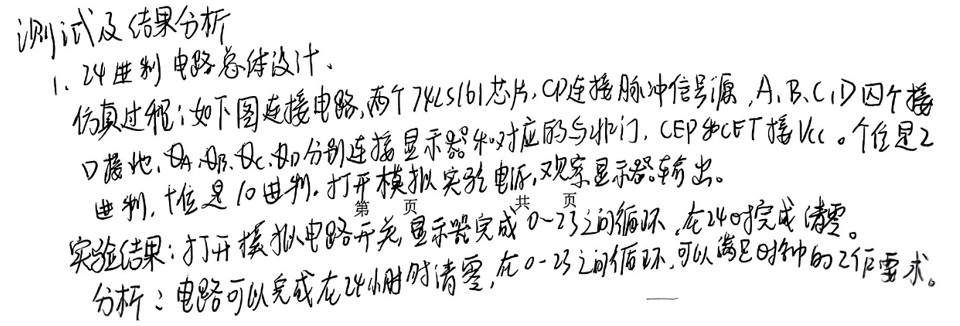 测试及结果分析
1. 24进制电路总体设计.
仿真过程:如下图连接电路,两个74LS161芯片,CP连接脉冲信号源,A、B、C、D四个接
口接地,QA、QB、QC、QD分别连接显示器和对应的与非门,CEP和CET接Vcc。个位是2
进制,十位是10进制.打开模拟实验电源,观察显示器输出。
第 页 共 页
实验结果:打开模拟电路开关,显示器完成0~23之间循环,在24时完成清零。
分析:电路可以完成在24小时时清零,在0-23之间循环,可以满足时钟的工作要求。